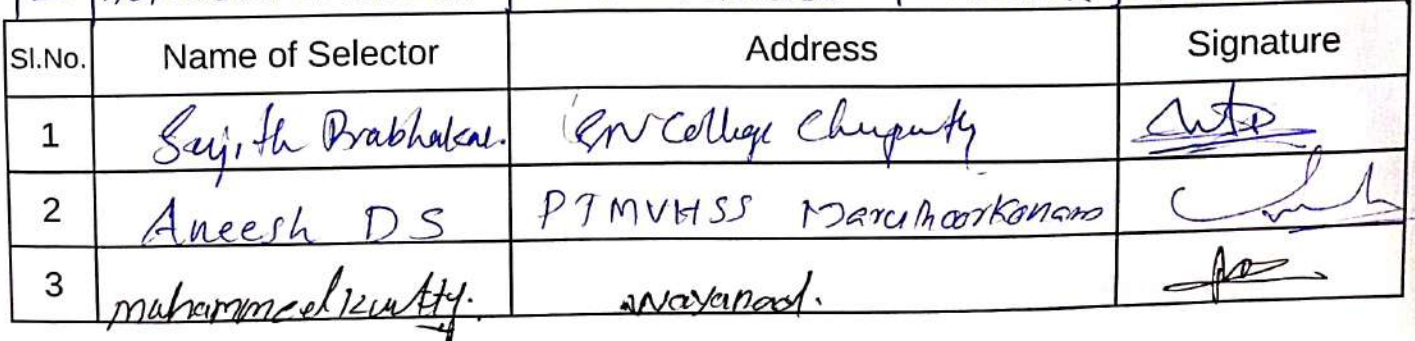 Sl.No. Name of Selector Address Signature
1 Sajith Prabhakar. SN College
2 Aneesh DS PTMVHSS Maruthoorkonam
3 muhammed kutty. wayanad.